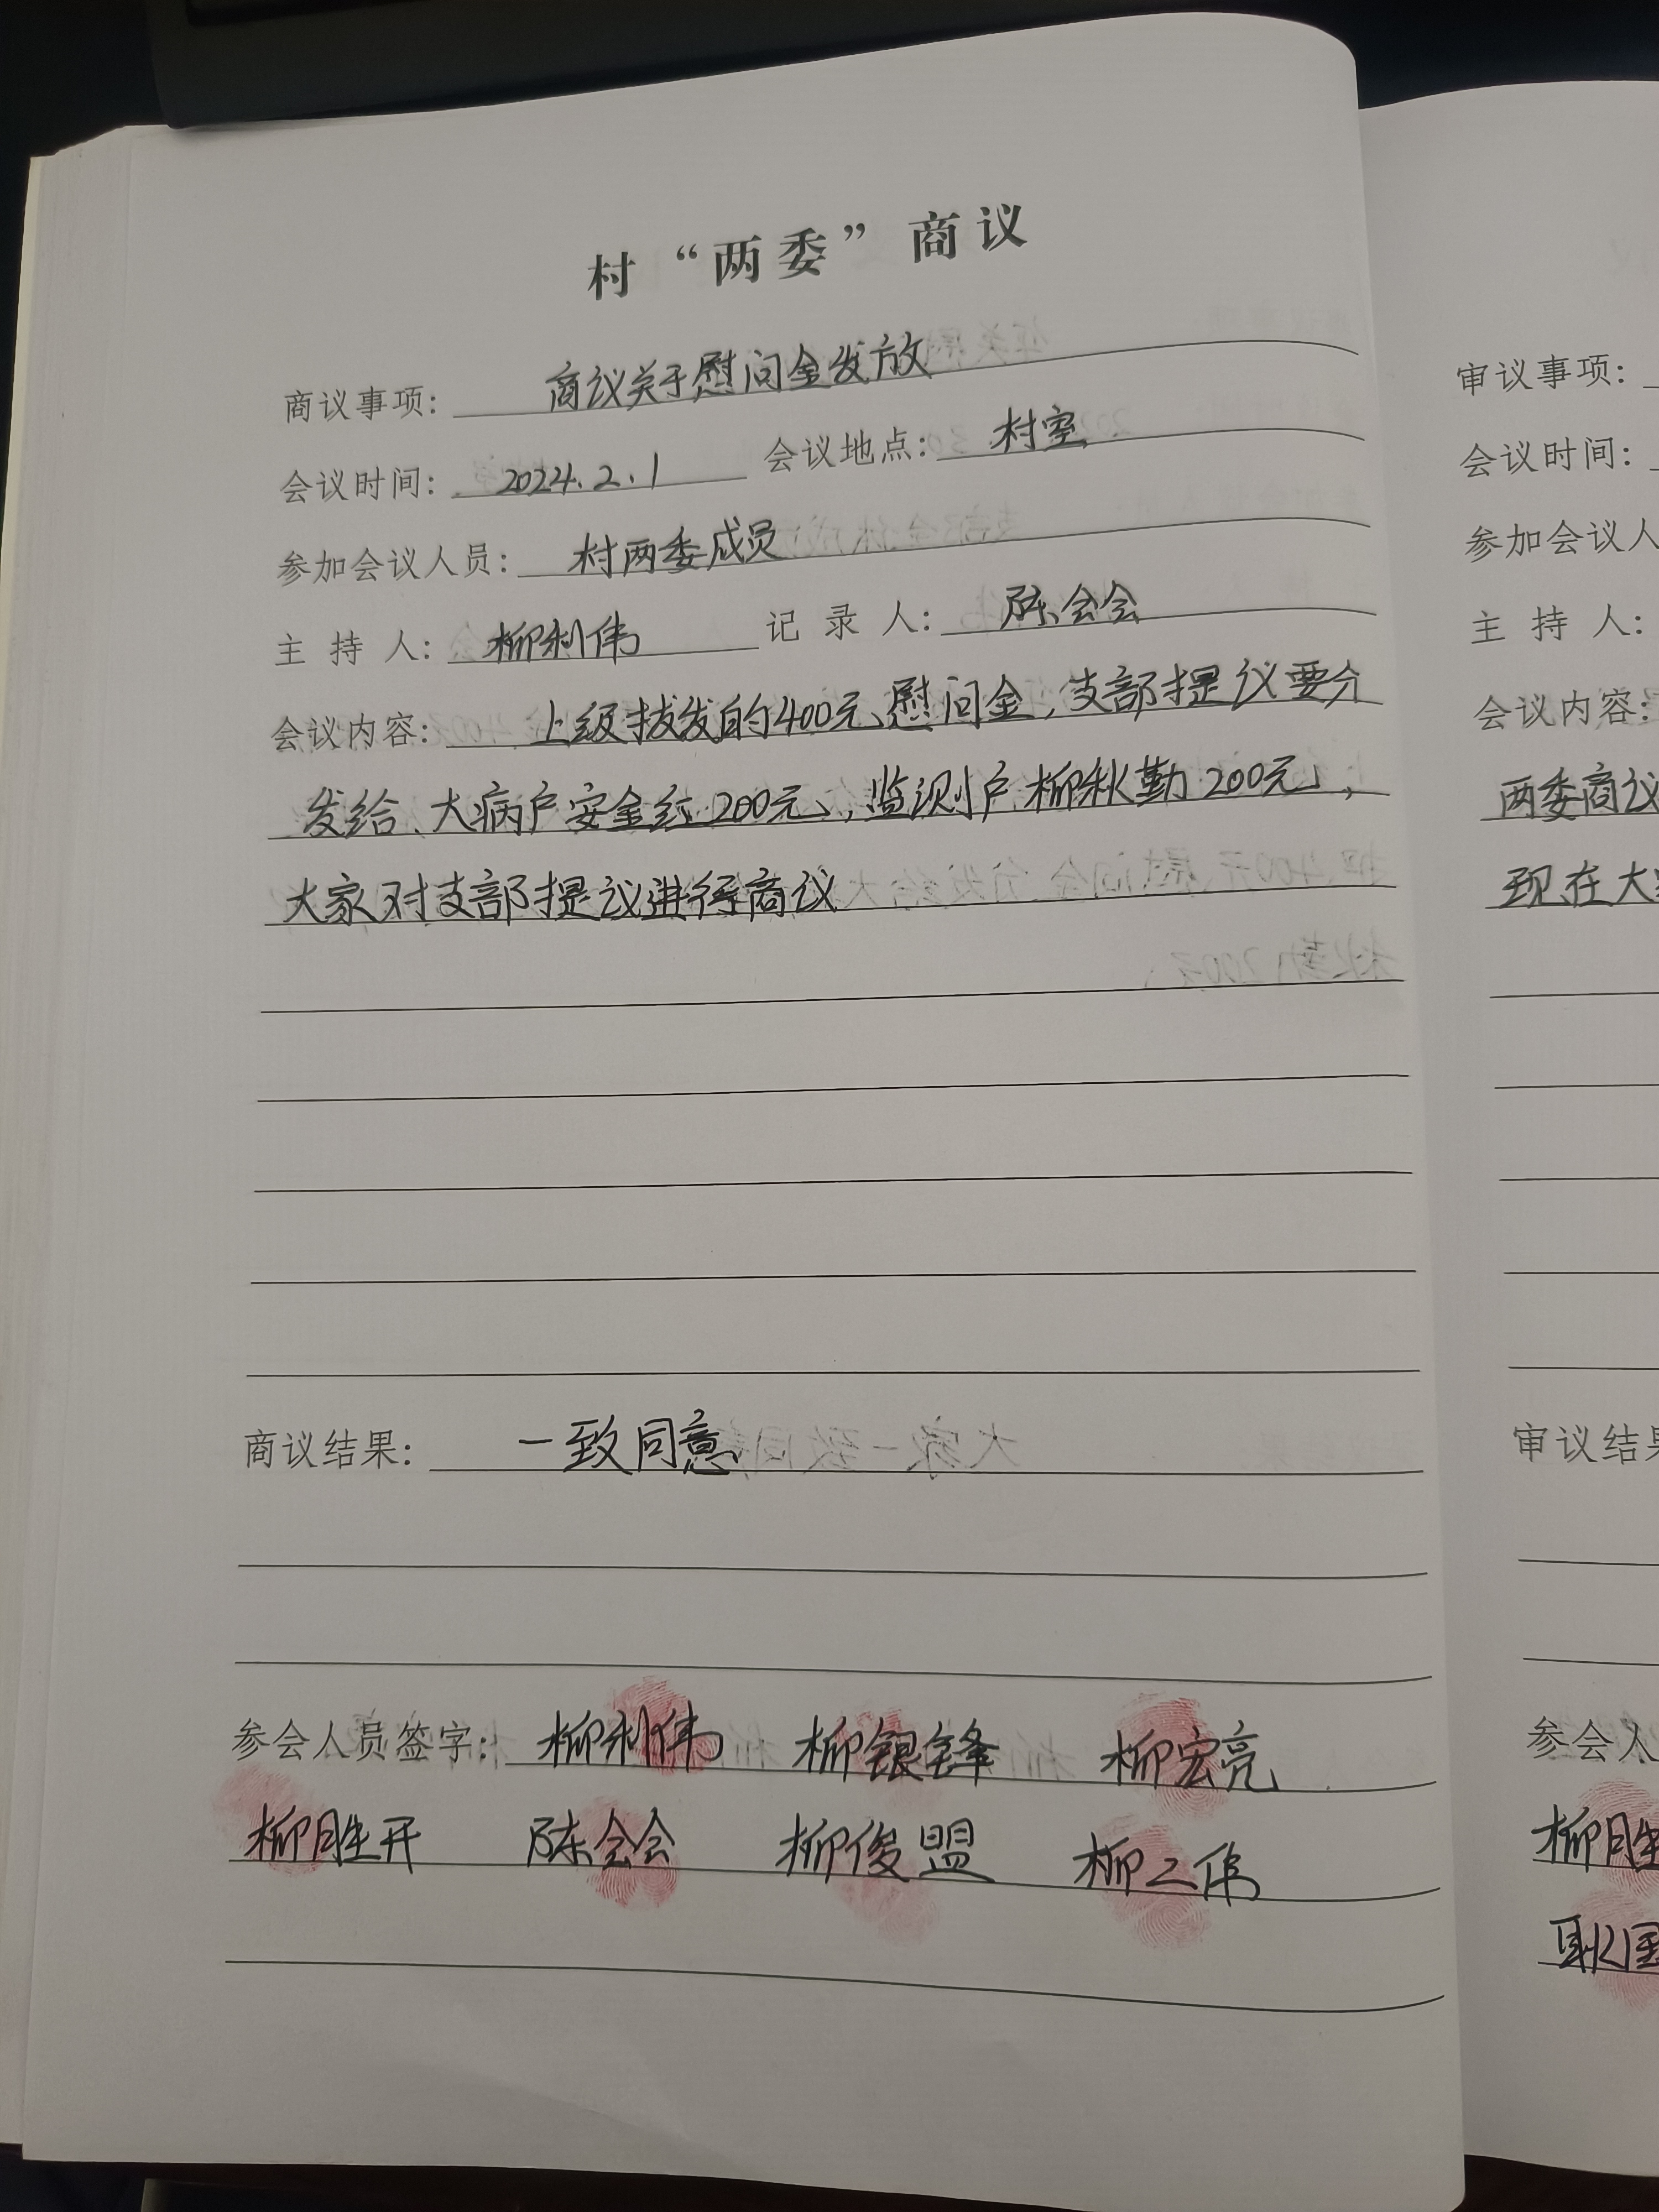 村“两委”商议
商议事项： 商议关于慰问金发放
会议时间： 2024.2.1 会议地点： 村室
参加会议人员： 村两委成员
主持人： 柳利伟 记录人： 陈会会
会议内容： 上级拨发的400元慰问金，支部提议要分
发给、大病户安金红200元，监测户柳秋勤200元，
大家对支部提议进行商议
商议结果： 一致同意
参会人员签字： 柳利伟 柳银锋 柳宏亮
柳胜开 陈会会 柳俊盟 柳二伟
审议事项：
会议时间：
参加会议人
主持人：
会议内容：
两委商议
现在大
审议结果
参会人
柳胜